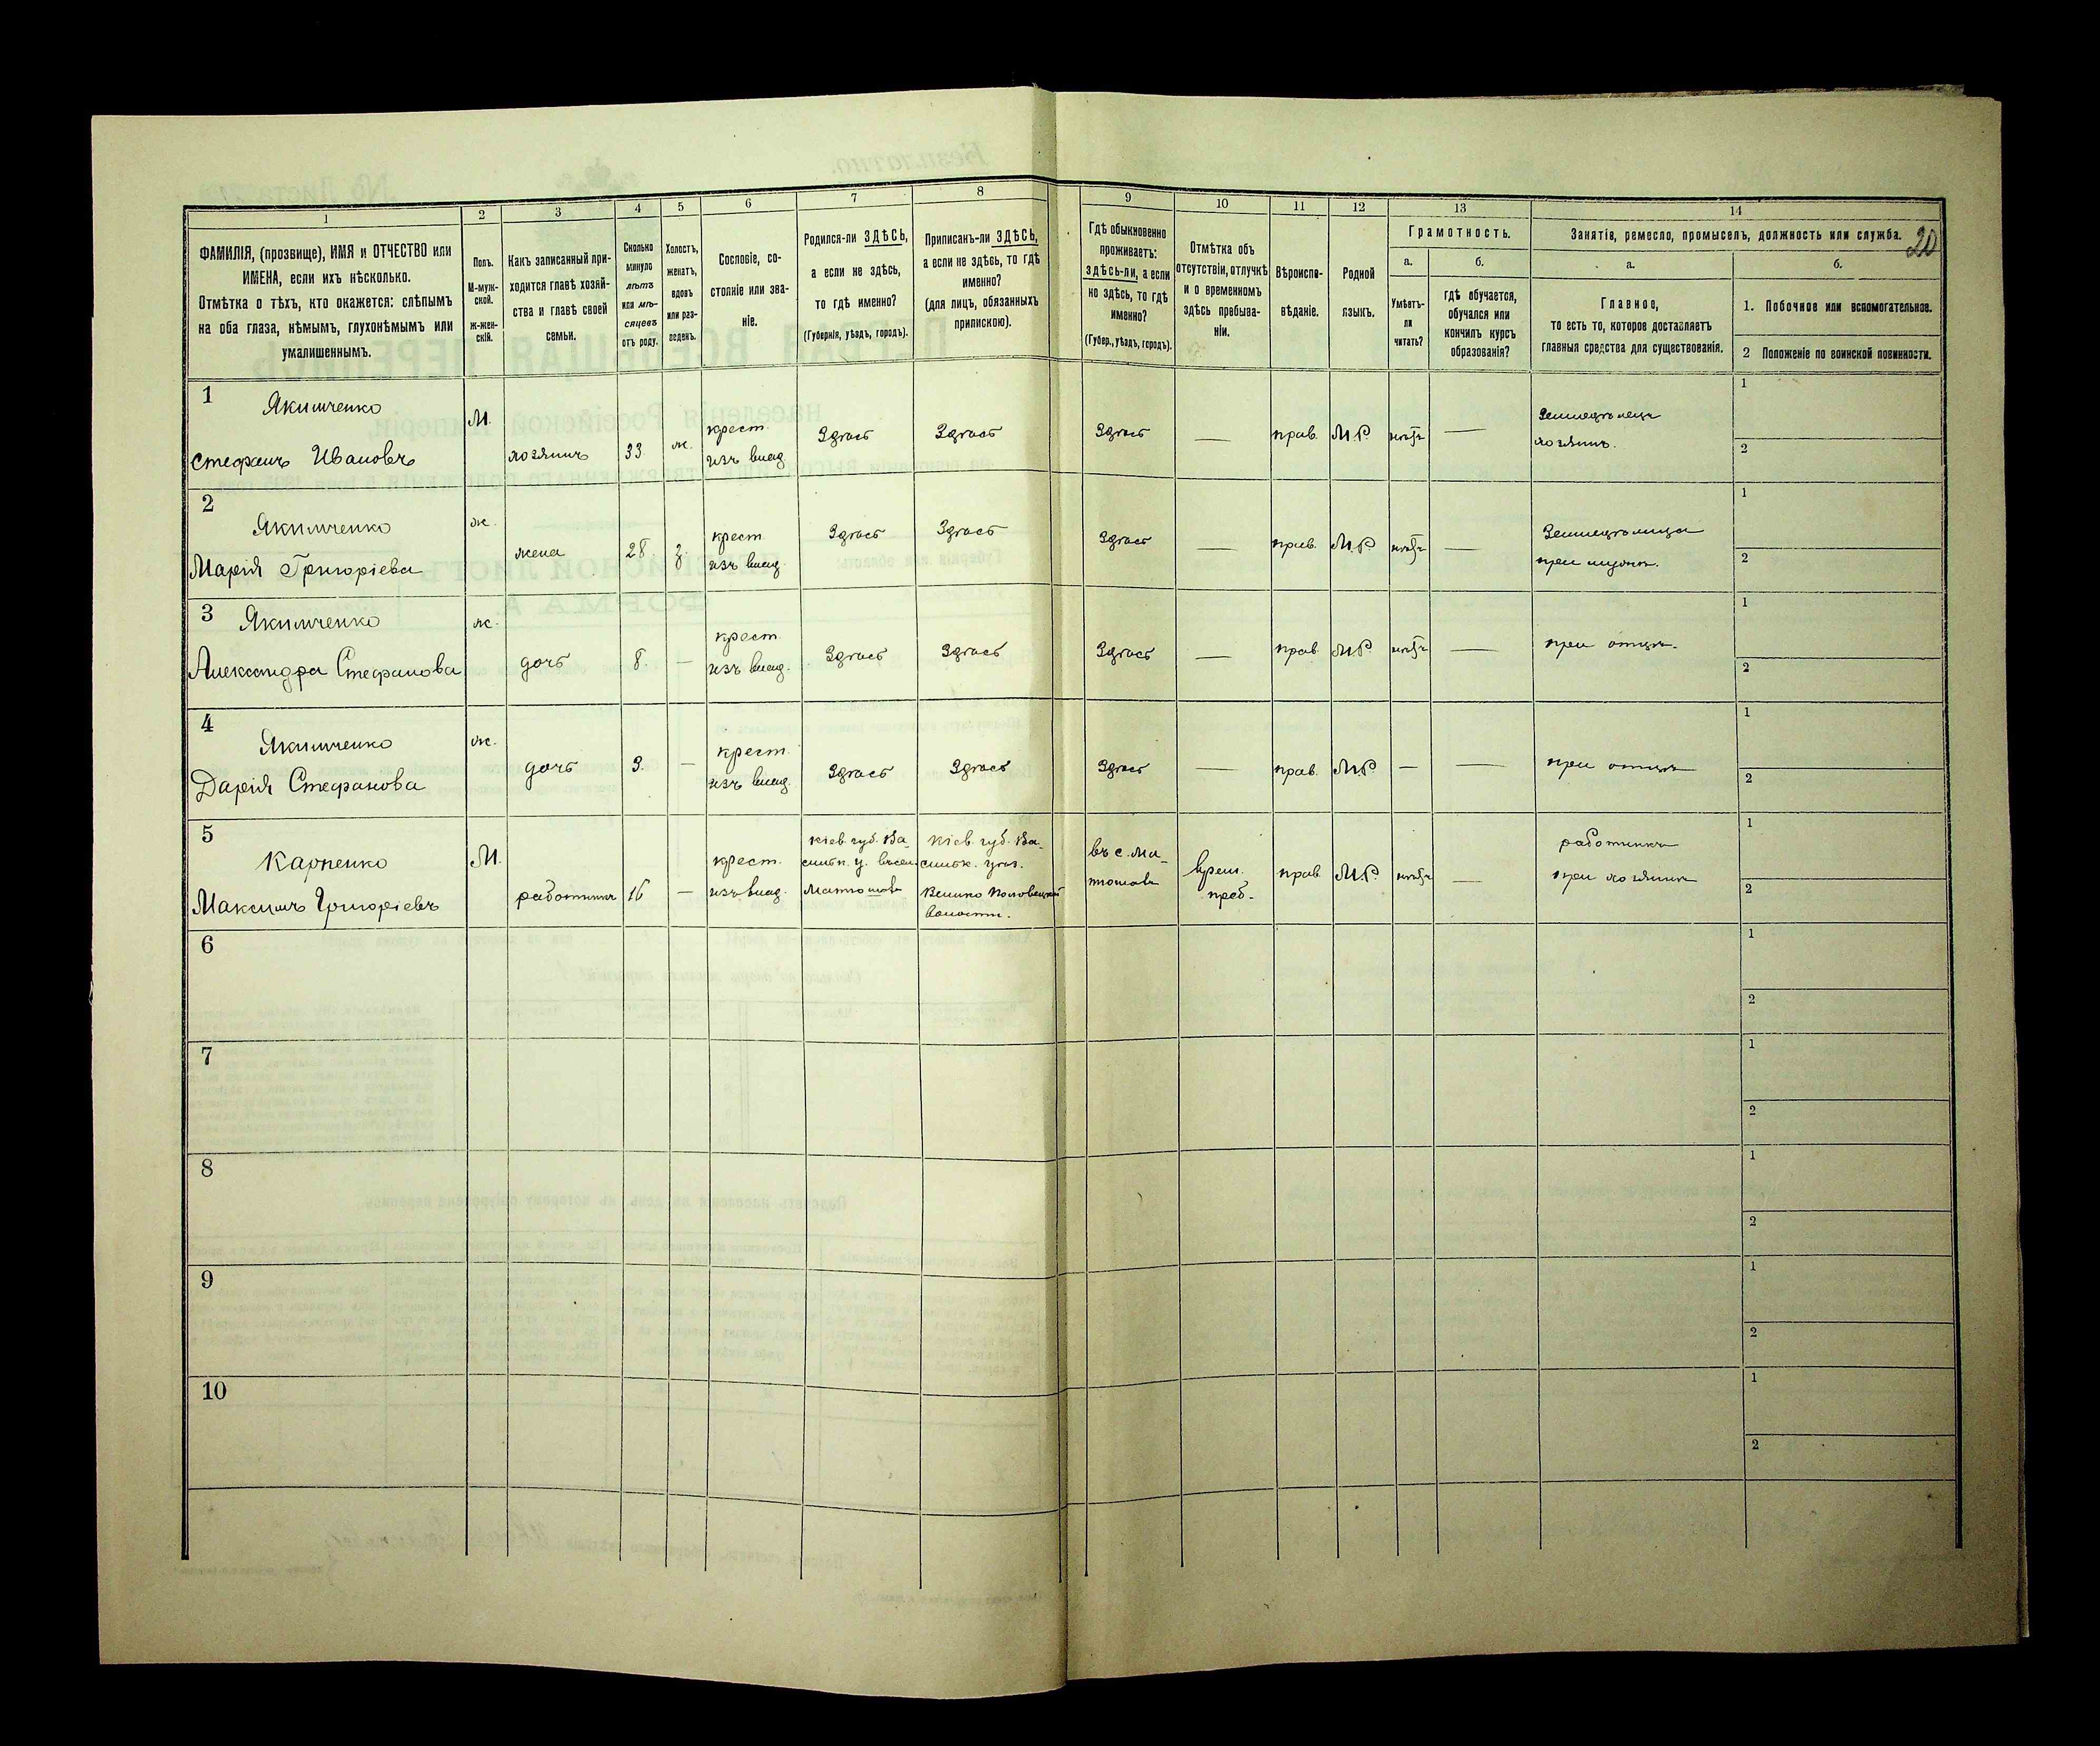 20
1 2 3 4 5 6 7 8 9 10 11 12 13 14
ФАМИЛІЯ, (прозвище), ИМЯ и ОТЧЕСТВО или
ИМЕНА, если ихъ нѣсколько.
Отмѣтка о тѣхъ, кто окажется: слѣпымъ
на оба глаза, нѣмымъ, глухонѣмымъ или
умалишеннымъ.
Полъ.
М-муж-
ской.
Ж-жен-
скій.
Какъ записанный при-
ходится главѣ хозяй-
ства и главѣ своей
семьи.
Сколько
минуло
лѣтъ
или мѣ-
сяцевъ
отъ роду.
Холостъ,
женатъ,
вдовъ
или раз-
веденъ.
Сословіе, со-
стояніе или зва-
ніе.
Родился-ли ЗДѢСЬ,
а если не здѣсь,
то гдѣ именно?
(Губернія, уѣздъ, городъ).
Приписанъ-ли ЗДѢСЬ,
а если не здѣсь, то гдѣ
именно?
(для лицъ, обязанныхъ
припискою).
Гдѣ обыкновенно
проживаетъ:
здѣсь-ли, а если
не здѣсь, то гдѣ
именно?
(Губер., уѣздъ, городъ).
Отмѣтка объ
отсутствіи, отлучкѣ
и о временномъ
здѣсь пребыва-
ніи.
Вѣроиспо-
вѣданіе.
Родной
языкъ.
Грамотность.
а.
Умѣетъ-
ли
читать?
б.
гдѣ обучается,
обучался или
кончилъ курсъ
образованія?
Занятія, ремесло, промыселъ, должность или служба.
а.
Главное,
то есть то, которое доставляетъ
главныя средства для существованія.
б.
1. Побочное или вспомогательное.
2 Положеніе по воинской повинности.
1 Якимченко
Стефанъ Ивановъ
М.
хозяинъ
33.
ж.
крест.
изъ влад.
Здѣсь
Здѣсь
Здѣсь
—
прав.
М.Р.
нѣтъ
—
Земледѣлецъ
хозяинъ.
1
2
2 Якимченко
Марія Григоріева
ж.
жена
28.
з.
крест.
изъ влад.
Здѣсь
Здѣсь
Здѣсь
—
прав.
М.Р.
нѣтъ
—
Земледѣлица
при мужѣ.
1
2
3 Якимченко
Александра Стефанова
ж.
дочь
8.
—
крест.
изъ влад.
Здѣсь
Здѣсь
Здѣсь
—
прав
М.Р.
нѣтъ
—
при отцѣ.
1
2
4 Якимченко
Дарія Стефанова
ж.
дочь
3.
—
крест.
изъ влад.
Здѣсь
Здѣсь
Здѣсь
—
прав.
М.Р.
—
—
при отцѣ
1
2
5 Карпенко
Максимъ Григоріевъ
М.
работникъ
16
—
крест.
изъ влад.
Кіев. губ. Ва-
сильк. у. въ сел.
Матюшовѣ
Кіев. губ. Ва-
сильк. уѣз.
Велико Половецкой
волости.
въ с. Ма-
тюшовѣ
Врем.
преб.
прав.
М.Р.
нѣтъ
—
работникъ
при хозяинѣ
1
2
6
1
2
7
1
2
8
1
2
9
1
2
10
1
2